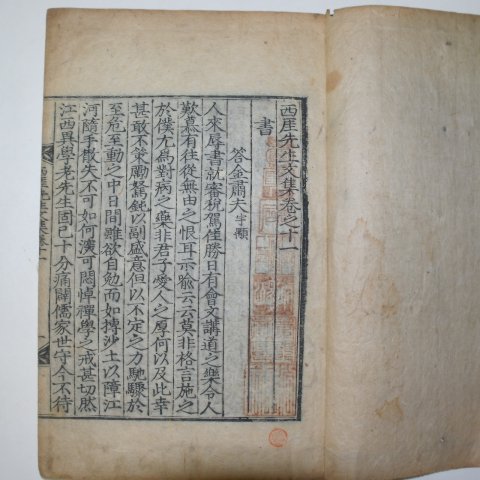 西厓先生文集卷之十一
書
答金肅夫 宇顒
人來辱書就審稅駕佳勝日有會文講道之樂令人
歎慕有往從無由之恨耳示喩云云莫非格言施之
於僕尤爲對病之藥非君子愛人之厚何以及此幸
甚敢不策勵駑鈍以副盛意但以不定之力馳驟於
至危至動之中日間雖欲自勉而如摶沙土以障江
河隨手散失不可如何演可悶悼禪學之戒甚切然
江西異學老先生固已十分痛闢儒家世守今不待
西厓先生文集卷十一